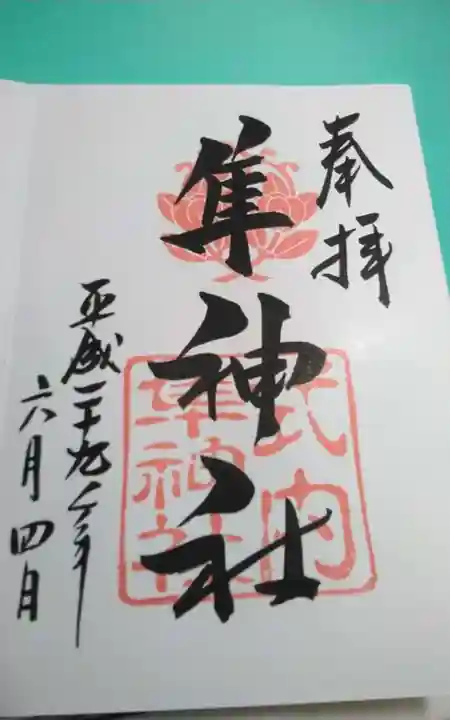 奉拝
隼神社
式内
隼神社
平成二十九年
六月四日